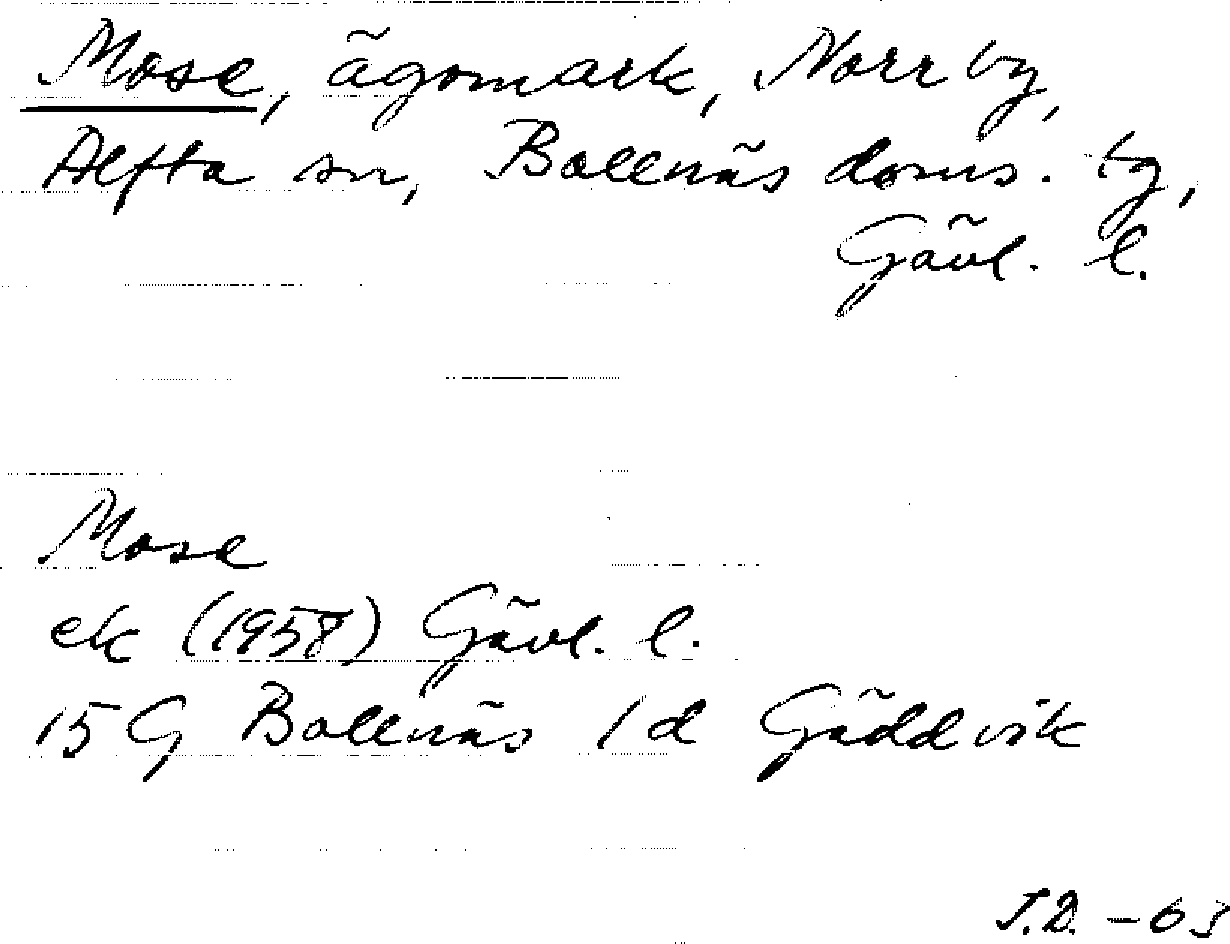 Mose, ägomark, Norrby,
Alfta sn, Bollnäs doms. tg,
Gävl. l.
Mose
ek (1957) Gävl. l.
15 G Bollnäs 1d Gäddvik
J.D. -63